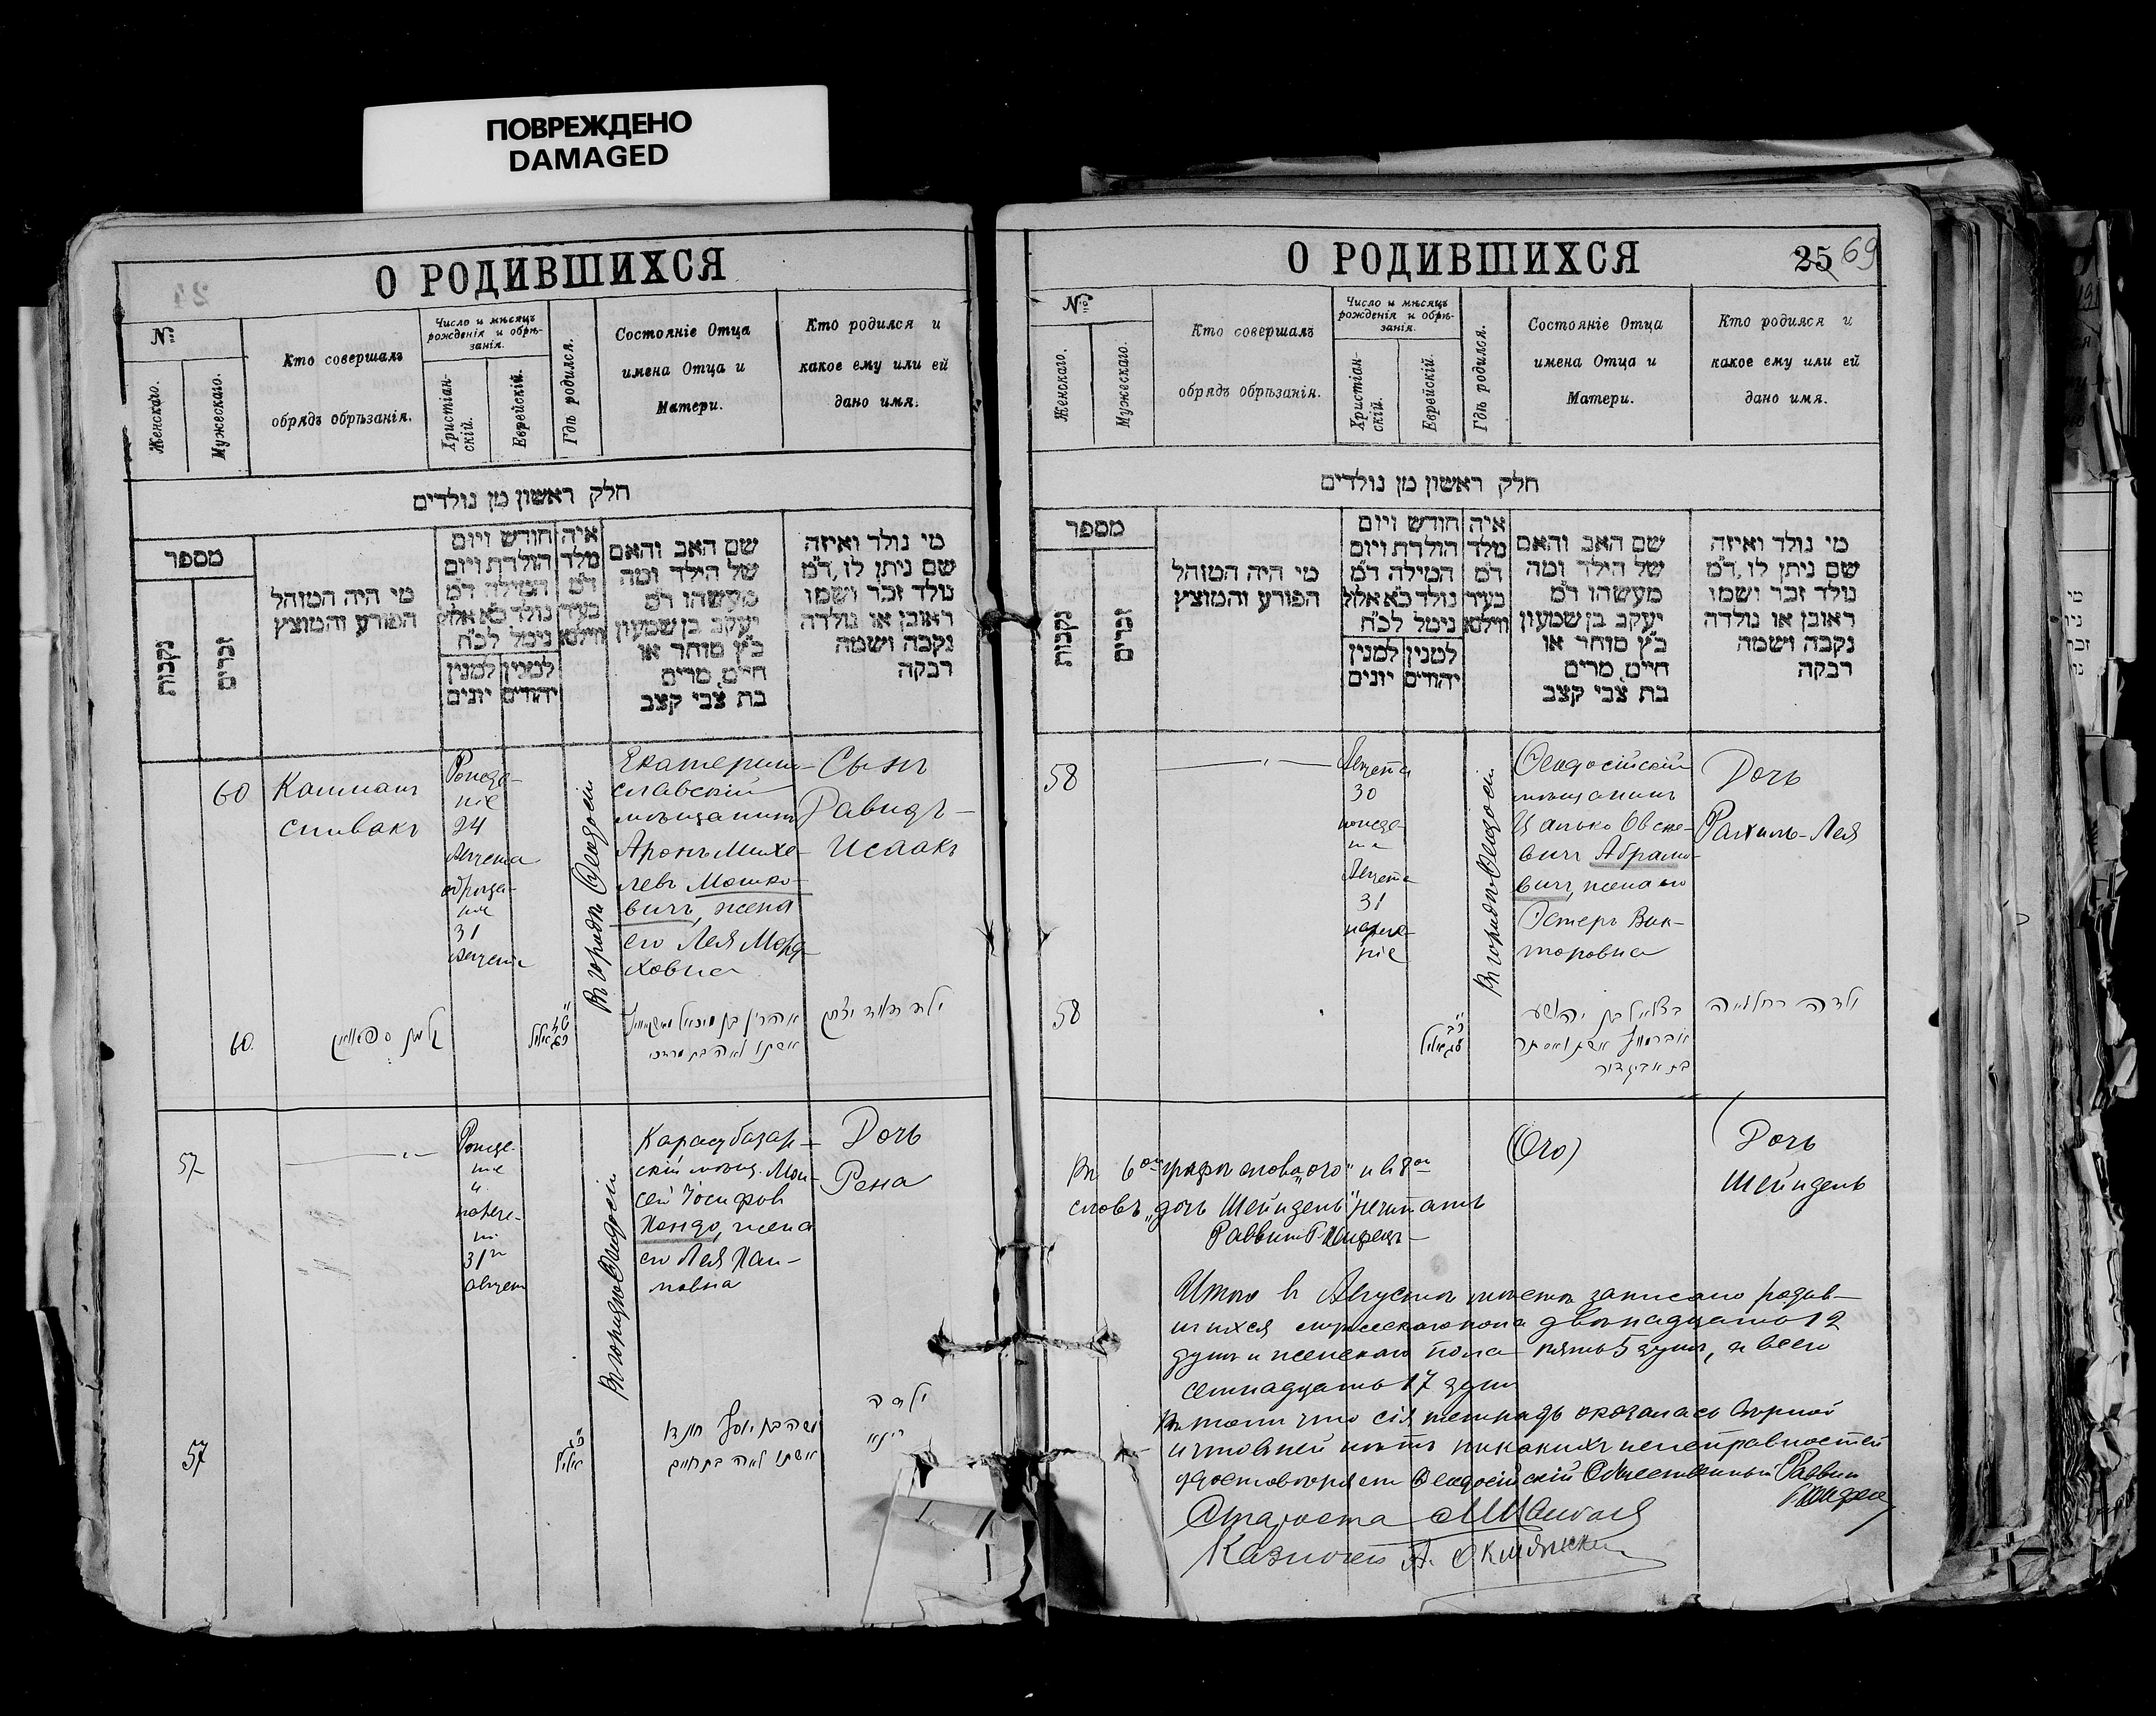 ПОВРЕЖДЕНО
DAMAGED
О РОДИВШИХСЯ
№
Женскаго.
Мужескаго.
Кто совершалъ
обрядъ обрѣзанія.
Число и мѣсяцъ
рожденія и обрѣ-
занія.
Христіан-
скій.
Еврейскій.
Гдѣ родился.
Состояніе Отца
имена Отца и
Матери.
Кто родился и
какое ему или ей
дано имя.
חלק ראשון מן נולדים
מספר
נקבות
זכרים
מי היה המוהל
הפורע והמוצץ
חודש ויום
הולדת ויום
המילה ד״מ
נולד כ״א אלול
נימל לכ״ח
למנין יונים
למנין יהודים
איה
מלד
ד״מ
בעיר
ווילנא
שם האב והאם
של הילד ומה
מעשהו ד״מ
יעקב בן שמעון
כ״ץ סוחר או
חיים, מרים
בת צבי קצב
מי נולד ואיזה
שם ניתן לו, ד״מ
נולד זכר ושמו
ראובן או נולדה
נקבה ושמה
רבקה
60
Калманъ
Спивакъ
Рожде-
ніе
24
Августа
обрѣза-
ніе
31
Августа
Въ городѣ Ѳеодосіи
Екатерино-
славскій
мѣщанинъ
Аронъ Михе-
левъ Мошко-
вичъ, жена
его Лея Морд-
ховна
Сынъ
Давидъ-
Исаакъ
60
אשתו לאה בת מרדכי
ילד דוד יצחק
57
Рожде-
ніе
и
нарече-
ніе
31го
август
Въ городѣ Ѳеодосіи
Карасубазар-
скій мѣщ. Мои-
сей Іосифов
Хондо, жена
его Лея Хаи-
мовна
Дочь
Рена
57
אלול
משה בן יוסף חנדו
אשתו לאה בת חיים
ילדה
רינא
О РОДИВШИХСЯ
25 69
№
Женскаго.
Мужескаго.
Кто совершалъ
обрядъ обрѣзанія.
Число и мѣсяцъ
рожденія и обрѣ-
занія.
Христіан-
скій.
Еврейскій.
Гдѣ родился.
Состояніе Отца
имена Отца и
Матери.
Кто родился и
какое ему или ей
дано имя.
חלק ראשון מן נולדים
מספר
נקבות
זכרים
מי היה המוהל
הפורע והמוצץ
חודש ויום
הולדת ויום
המילה ד״מ
נולד כ״א אלול
נימל לכ״ח
למנין יונים
למנין יהודים
איה
מלד
ד״מ
בעיר
ווילנא
שם האב והאם
של הילד ומה
מעשהו ד״מ
יעקב בן שמעון
כ״ץ סוחר או
חיים, מרים
בת צבי קצב
מי נולד ואיזה
שם ניתן לו, ד״מ
נולד זכר ושמו
ראובן או נולדה
נקבה ושמה
רבקה
58
Августа
30
рожде-
ніе
Августа
31
нарече-
ніе
Въ городѣ Ѳеодосіи
Ѳеодосійскій
мѣщанинъ
Цалько Овсѣе-
вичъ Абрамо-
вичъ, жена его
Эстеръ Вик-
торовна
Дочь
Рахиль-Лея
58
בצלאל בן יהושע
אברמוביץ אשתו אסתר
בת אביגדור
ילדה רחל לאה
(Ого)
Дочь
Шейндель
Въ 6ой графѣ слова „ого" и въ 8ой
словъ „дочь Шейндель" нечитать
Раввинъ
Итого въ Августѣ мѣсяцѣ записано родив-
шихся мужескаго пола двѣнадцать 12
душъ и женскаго пола пять 5 душъ, а всего
семнадцать 17 душъ
Въ томъ что сія тетрадь оказалась вѣрной
и что въ ней нѣтъ никакихъ неисправностей
удостовѣряетъ Ѳеодосійскій Общественный Раввин
Староста
Казначей А.